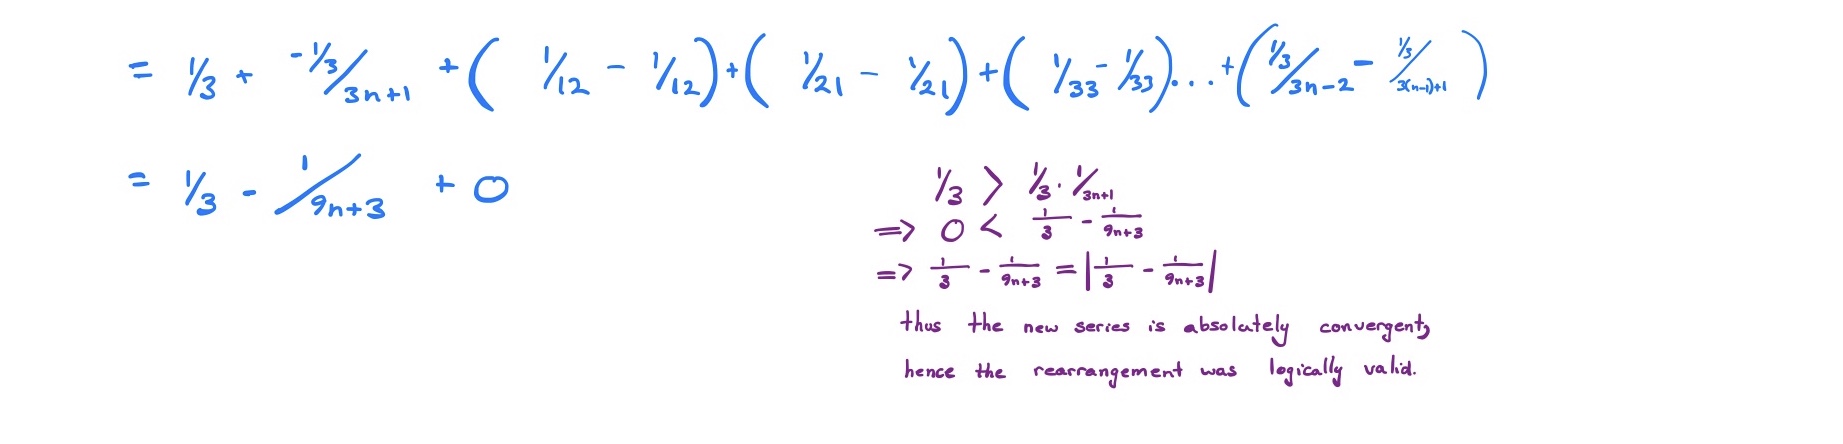 = 1/3 + -1/3/3n+1 + ( 1/12 - 1/12) + ( 1/21 - 1/21) + ( 1/33 - 1/33)... + (1/3/3n-2 - 1/3/3(n-1)+1 )
= 1/3 - 1/9n+3 + 0
1/3 > 1/3 · 1/3n+1
=> 0 < 1/3 - 1/9n+3
=> 1/3 - 1/9n+3 = |1/3 - 1/9n+3|
thus the new series is absolutely convergent,
hence the rearrangement was logically valid.